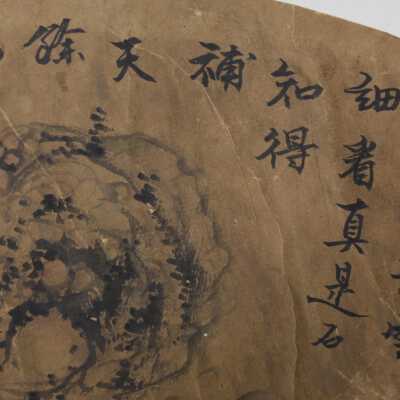 細看真是石
知得
補
天
餘